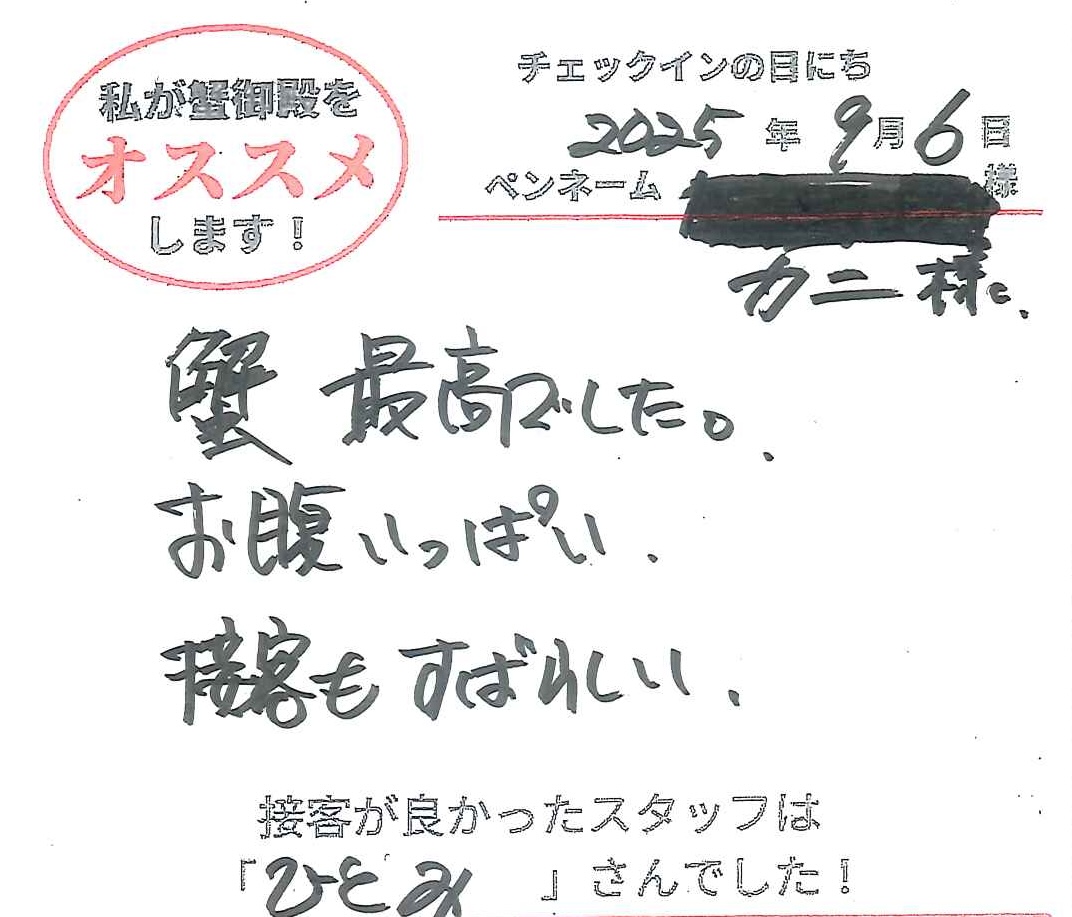 私が蟹御殿を
オススメ
します！
チェックインの日にち
2025年9月6日
ペンネーム 様
カニ様
蟹 最高でした。
お腹いっぱい.
接客もすばらしい.
接客が良かったスタッフは
「ひとみ」さんでした！